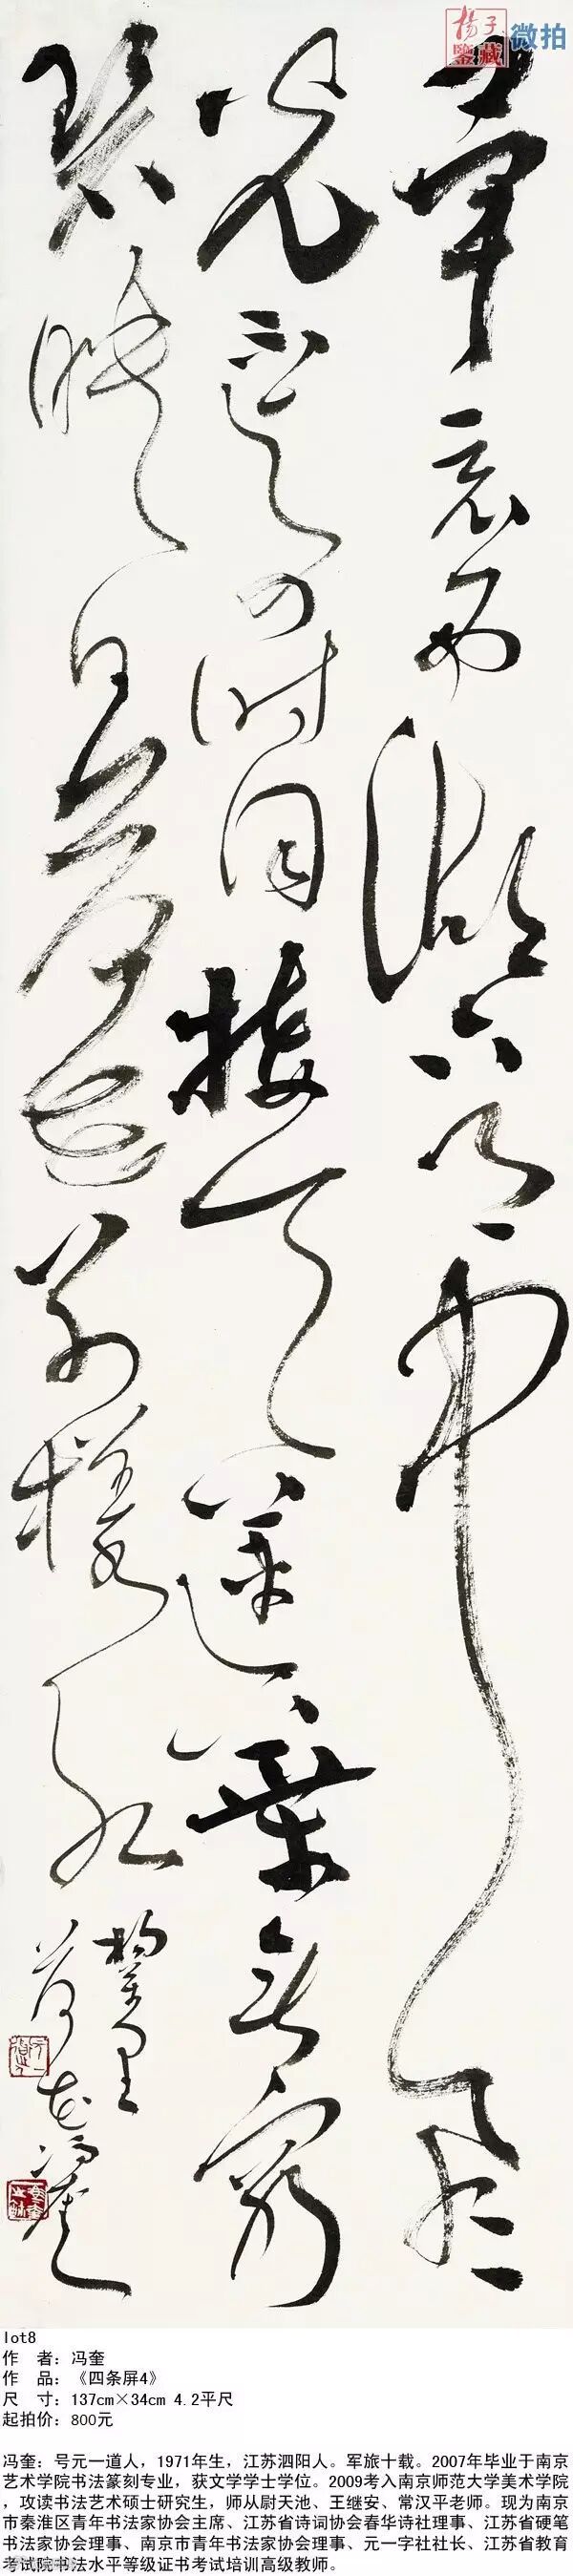 揚子
鑒藏
微拍
畢竟西湖六月中風
光不与四時同接天蓮葉無窮
碧映日荷花別樣紅
楊萬里
荷花馮奎
lot8
作 者：冯奎
作 品：《四条屏4》
尺 寸：137cm×34cm 4.2平尺
起拍价：800元
冯奎：号元一道人，1971年生，江苏泗阳人。军旅十载。2007年毕业于南京
艺术学院书法篆刻专业，获文学学士学位。2009考入南京师范大学美术学院
，攻读书法艺术硕士研究生，师从尉天池、王继安、常汉平老师。现为南京
市秦淮区青年书法家协会主席、江苏省诗词协会春华诗社理事、江苏省硬笔
书法家协会理事、南京市青年书法家协会理事、元一字社社长、江苏省教育
考试院书法水平等级证书考试培训高级教师。